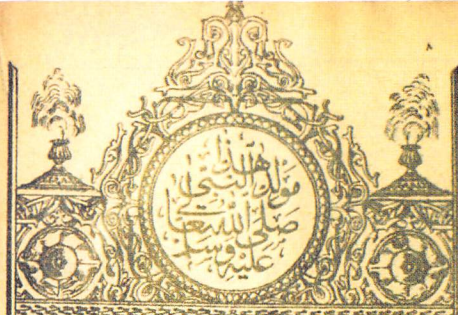 ٨
هَذَا
مَوْلِدُ النَّبِي
صَلَّى اللهُ تَعَالَى
عَلَيْهِ وَسَلَّمَ